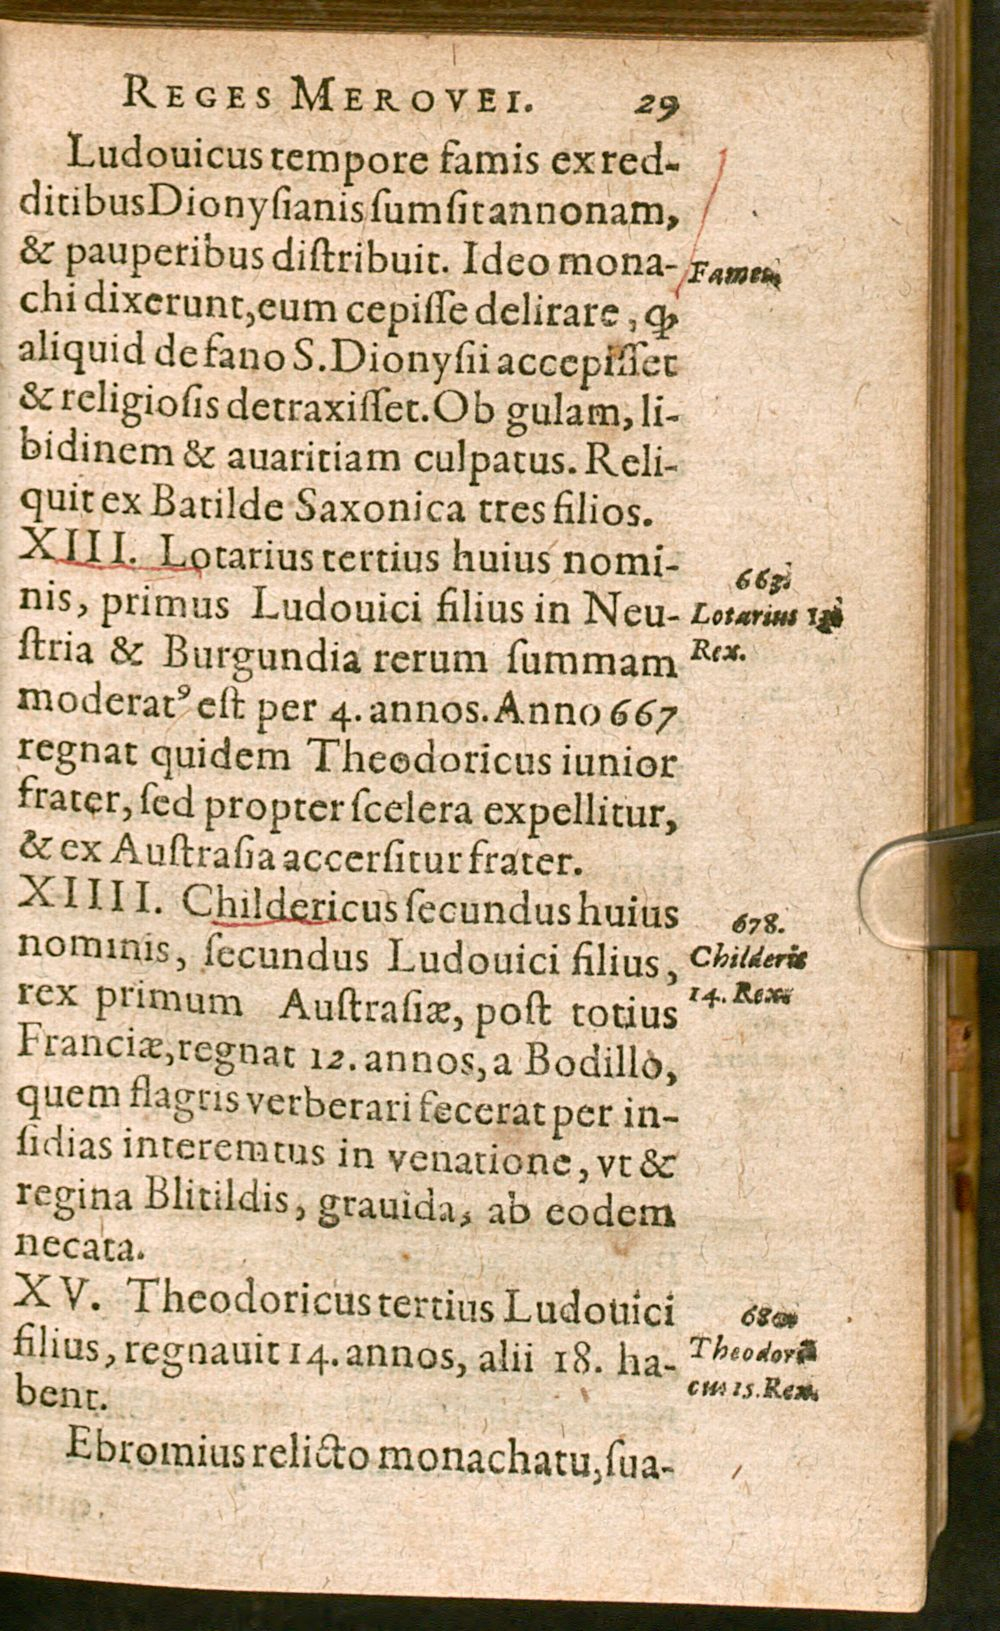 REGES MEROVEI. 29
Ludouicus tempore famis ex red-
ditibus Dionyſianis ſumſit annonam,
& pauperibus diſtribuit. Ideo mona-
Famem
chi dixerunt, eum cepiſſe delirare, ꝙ
aliquid de fano S. Dionyſii accepiſſet
& religioſis detraxiſſet. Ob gulam, li-
bidinem & auaritiam culpatus. Reli-
quit ex Batilde Saxonica tres filios.
XIII. Lotarius tertius huius nomi-
nis, primus Ludouici filius in Neu-
ſtria & Burgundia rerum ſummam
moderatꝰ eſt per 4. annos. Anno 667
regnat quidem Theodoricus iunior
frater, ſed propter ſcelera expellitur,
& ex Auſtraſia accerſitur frater.
663.
Lotarius 13.
Rex.
XIIII. Childericus ſecundus huius
nominis, ſecundus Ludouici filius,
rex primum Auſtraſiæ, poſt totius
Franciæ, regnat 12. annos, a Bodillo,
quem flagris verberari fecerat per in-
ſidias interemtus in venatione, vt &
regina Blitildis, grauida, ab eodem
necata.
678.
Childeric
14. Rex.
XV. Theodoricus tertius Ludouici
filius, regnauit 14. annos, alii 18. ha-
bent.
Theodori
cus 15. Rex.
Ebromius relicto monachatu, ſua-